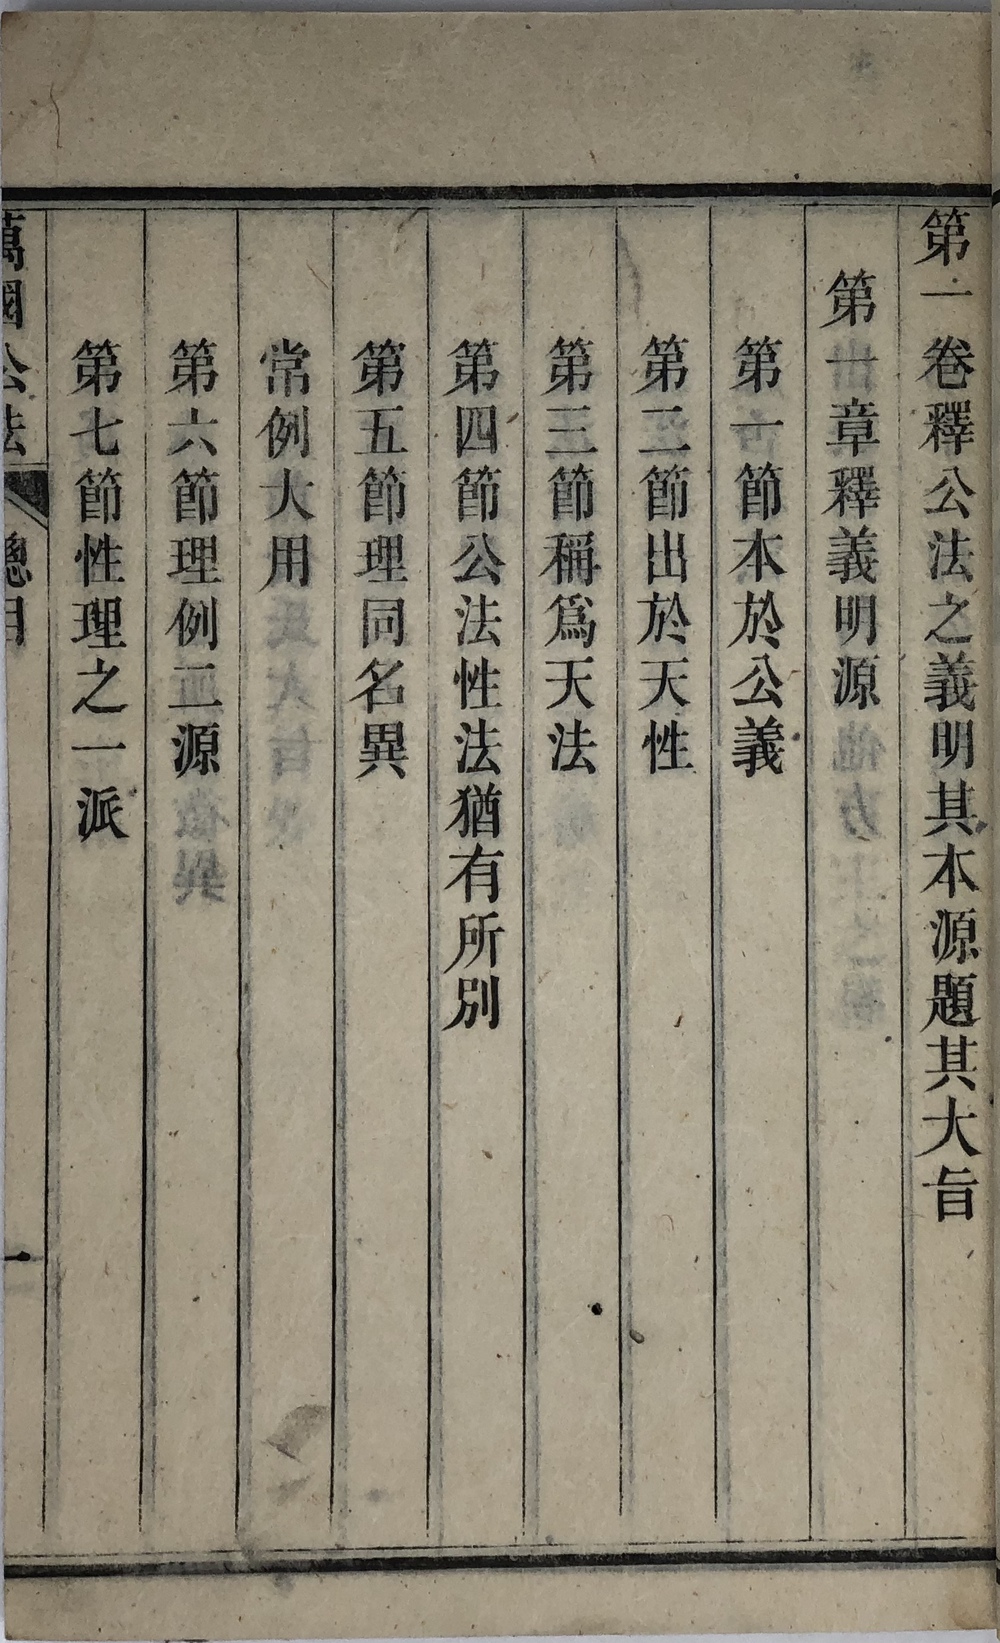 第一卷釋公法之義明其本源題其大旨
第一章釋義明源
第一節本於公義
第二節出於天性
第三節稱爲天法
第四節公法性法猶有所別
第五節理同名異
常例大用
第六節理例二源
第七節性理之一派
萬國公法 總目 一